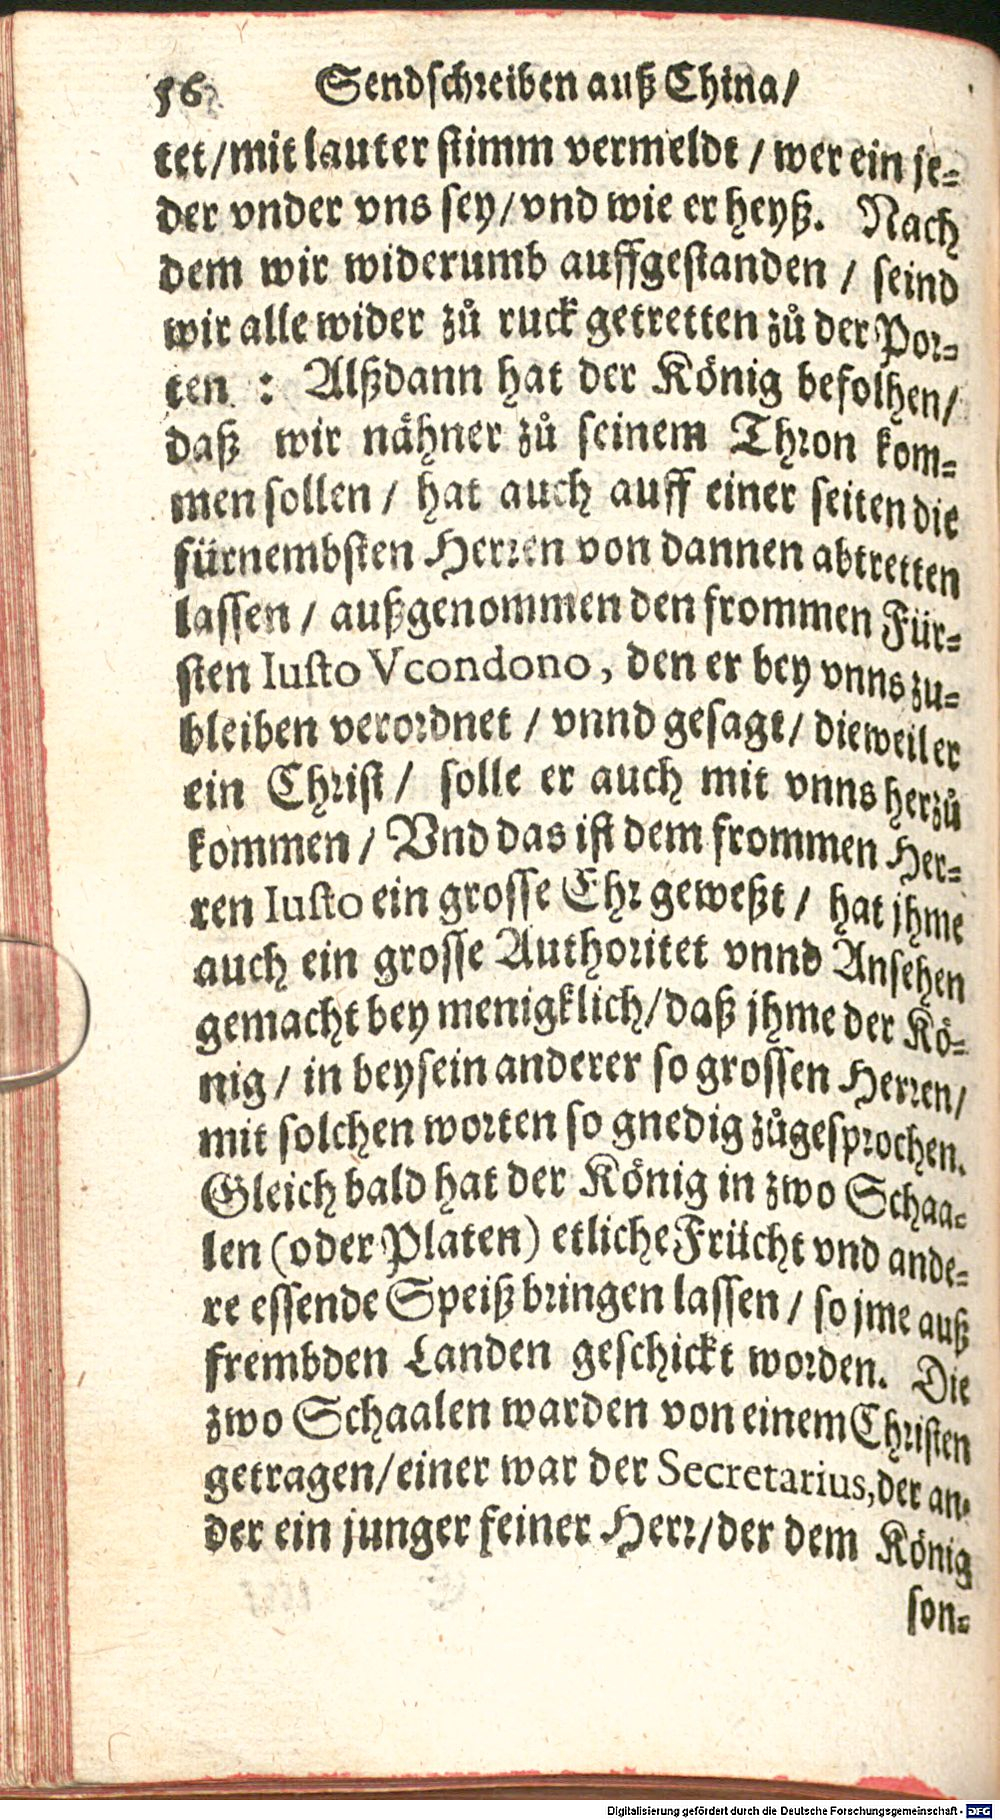 56 Sendschreiben auß China/
tet/mit lauter stimm vermeldt / wer ein je-
der vnder vns sey/vnd wie er heyß. Nach
dem wir widerumb auffgestanden / seind
wir alle wider zů ruck getretten zů der Por-
ten : Alßdann hat der König befolhen/
daß wir nähner zů seinem Thron kom-
men sollen / hat auch auff einer seiten die
fürnembsten Herren von dannen abtretten
lassen / außgenommen den frommen Für-
sten Iusto Vcondono, den er bey vnns zu-
bleiben verordnet / vnnd gesagt/ dieweil er
ein Christ/ solle er auch mit vnns herzů
kommen / Vnd das ist dem frommen Her-
ren Iusto ein grosse Ehr geweßt / hat jhme
auch ein grosse Authoritet vnnd Ansehen
gemacht bey menigklich/daß jhme der Kö-
nig/ in beysein anderer so grossen Herren/
mit solchen worten so gnedig zůgesprochen.
Gleich bald hat der König in zwo Schaa-
len (oder Platen) etliche Frücht vnd ande-
re essende Speiß bringen lassen / so jme auß
frembden Landen geschickt worden. Die
zwo Schaalen warden von einem Christen
getragen/einer war der Secretarius, der an-
der ein junger feiner Herr/der dem König
son-
Digitalisierung gefördert durch die Deutsche Forschungsgemeinschaft - DFG